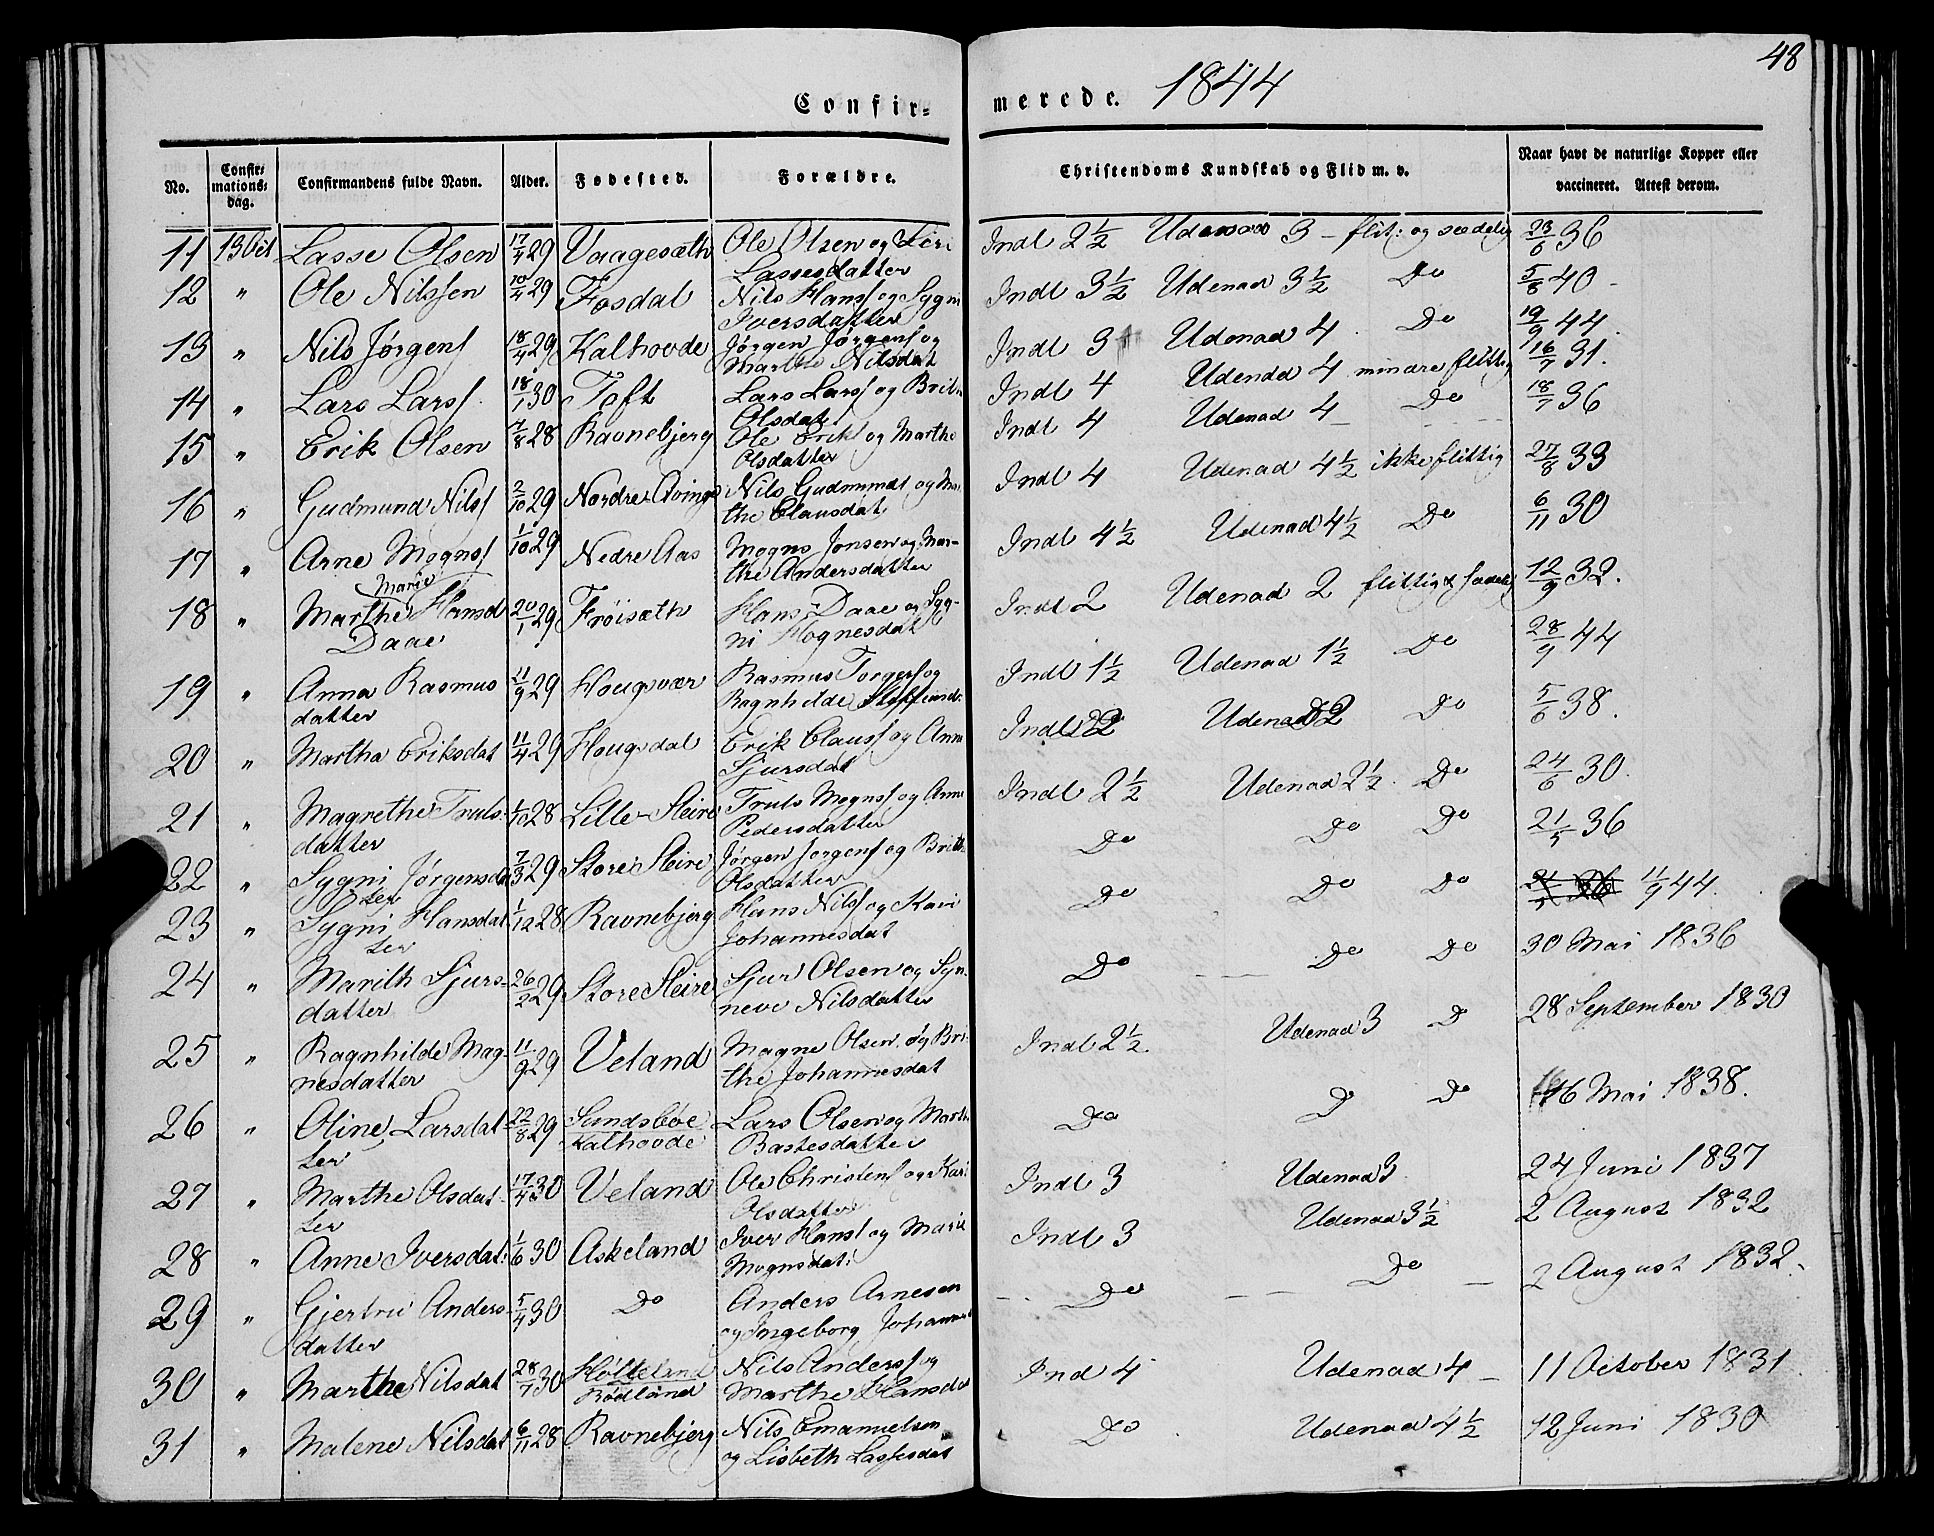 48
Confir- merede. 1844
No. Confir-mations-dag. Confirmandens fulde Navn. Alder. Fødested. Forældre. Christendoms Kundskab og Flid m. v. Naar havt de naturlige Kopper eller vaccineret. Attest derom.
11 13 Oct Lasse Olsen 17/4 29 Vaagesæth Ole Olsen og Siri Lassesdatter Indl 2 1/2 Udenad 3 - flit: og sædelig 23/6 36
12 " Ole Nilssen 10/4 29 Fosdal Nils Hanss og Sygni Iversdatter Indl 3 1/2 Udenad 3 1/2 Do 5/8 40 -
13 " Nils Jørgens 18/4 29 Kalhovde Jørgen Jørgens og Marthe Nilsdat Indl 3 Udenad 4 Do 19/9 44.
14 " Lars Larss. 18/1 30 Toft Lars Larss og Brit- Olsdat Indl 4 Udenad 4 mindre flittig 16/7 31.
15 " Erik Olsen 7/8 28 Ravnebjerg Ole Erik og Marthe Olsdatter Indl 4 Udenad 4 - Do 18/7 36
16 " Gudmund Nilss 2/10 29 Nordre Qvinge Nils Gudmunds og Mar the Clausdat Indl 4 Udenad 4 1/2 ikke flittig 27/8 33
17 " Arne Mognss 1/10 29 Nedre Aas Mogns Jonsen og Mar- the Andersdatter Indl 4 1/2 Udenad 4 1/2 Do 6/11 30
18 " Marthe Marie Hansd Daae 20/1 29 Frøisæth Hans Daae og Syg- ni Hognesdat Indl 2 Udenad 2 flittig & sædelig 12/9 32.
19 " Anna Rasmus datter 21/9 29 Hougsvær Rasmus Torgers og Ragnhilde Indl 1 1/2 Udenad 1 1/2 Do 28/9 44
20 " Martha Eriksdat 11/4 29 Hougsdal Erik Clauss og Anne Sjursdat Indl 2 Udenad 2 Do 5/6 38.
21 " Magrethe Truls- datter 1/10 28 Lille-Sleire Truls Mognss og Anne Pedersdatter Indl 2 1/2 Udenad 2 1/2. Do 24/6 30.
22 " Sygni Jørgensdat ter 7/3 29 Store Sleire Jørgen Jørgens og Britte Olsdatter Do Do Do 21/5 36
23 " Sygni Hansdat- ter 1/12 28 Ravnebjerg Hans Nilss og Kari Johannesdat Do Do Do 11/9 44.
24 " Marith Sjurs- datter 26/2 29 Store Sleire Sjur Olsen og Syn- neve Nilsdatter Do Do Do 30 Mai 1836
25 " Ragnhilde Mag- nesdatter 11/9 29 Veland Magne Olsen og Bri- the Johannesdat Indl 2 1/2. Udenad 3 D 28 September 1830
26 " Oline Larsdat- ter 22/8 29 Sundsbøe Kalhovde Lars Olsen og Marth Bastesdatter Do D Do 16 Mai 1838.
27 " Marthe Olsdat- ter 17/4 30 Veland Ole Christens og Kari Olsdatter Indl 3 Udenad 3 24 Juni 1837
28 " Anne Iversdat: 1/6 30 Askeland Iver Hanss og Marie Mognsdat: Indl 3 Udenad 3 1/2 2 August 1832
29 " Gjertru Anders- datter 5/4 30 Do Anders Arnesen og Ingeborg Johannes Do Do - 2 August 1832.
30 " Marthe Nilsdat 28/7 30 Rødland Nils Anderss og Marthe Hansdat Ind 4 Udenad 4 - 11 October 1831.
31 " Malene Nilsdat 6/11 28 Ravnebjerg Nils Emanuelsen og Lisbeth Lassesdat Do Udenad 4 1/2 12 Juni 1830